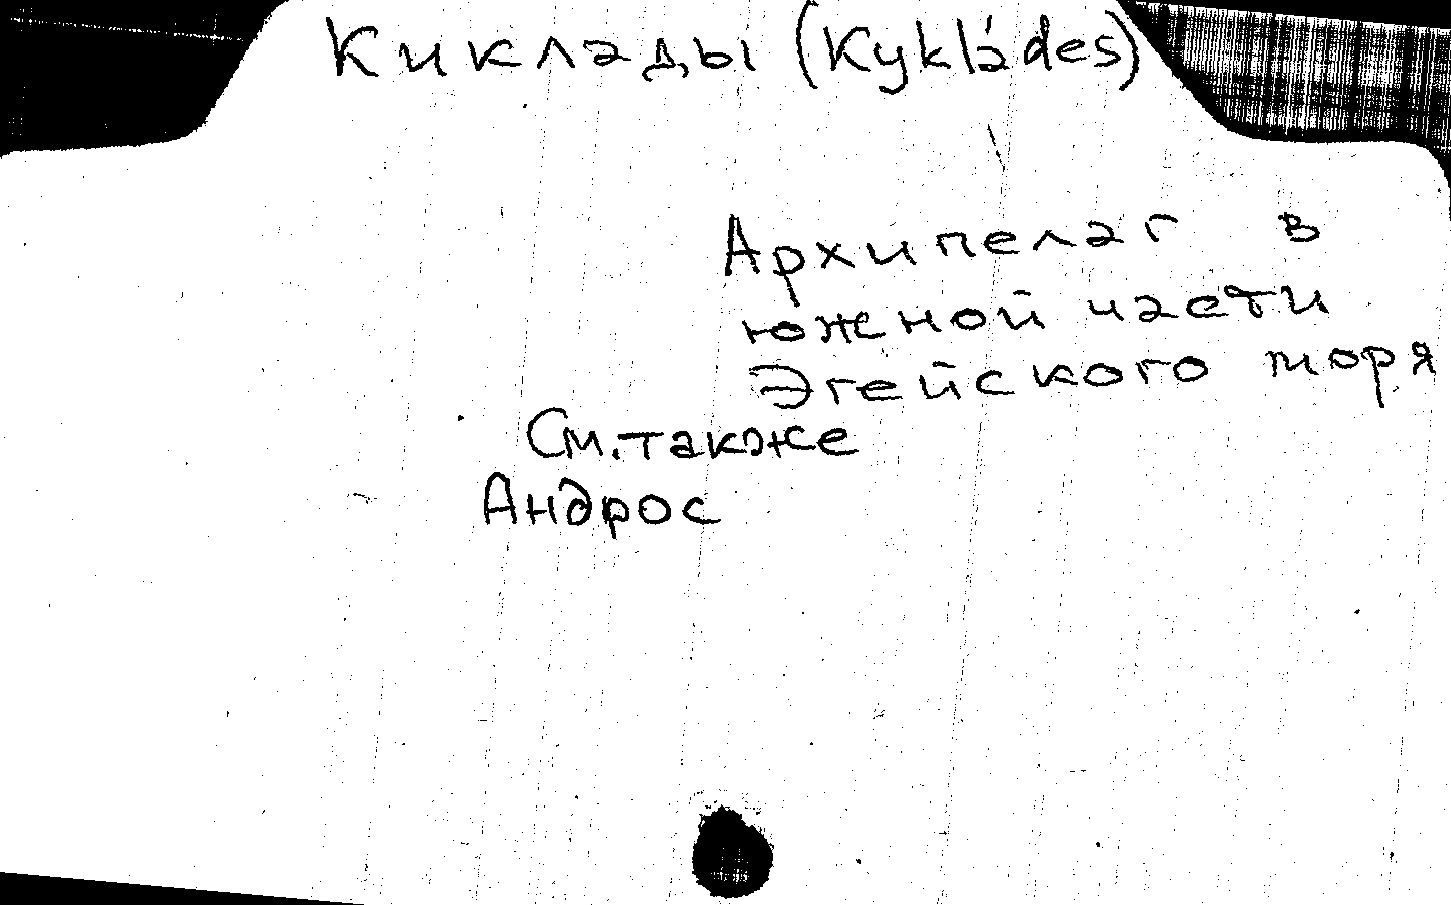 Киклады (Kykládes)
Архипелаг в
южной части
Эгейского моря
См. также
Андрос